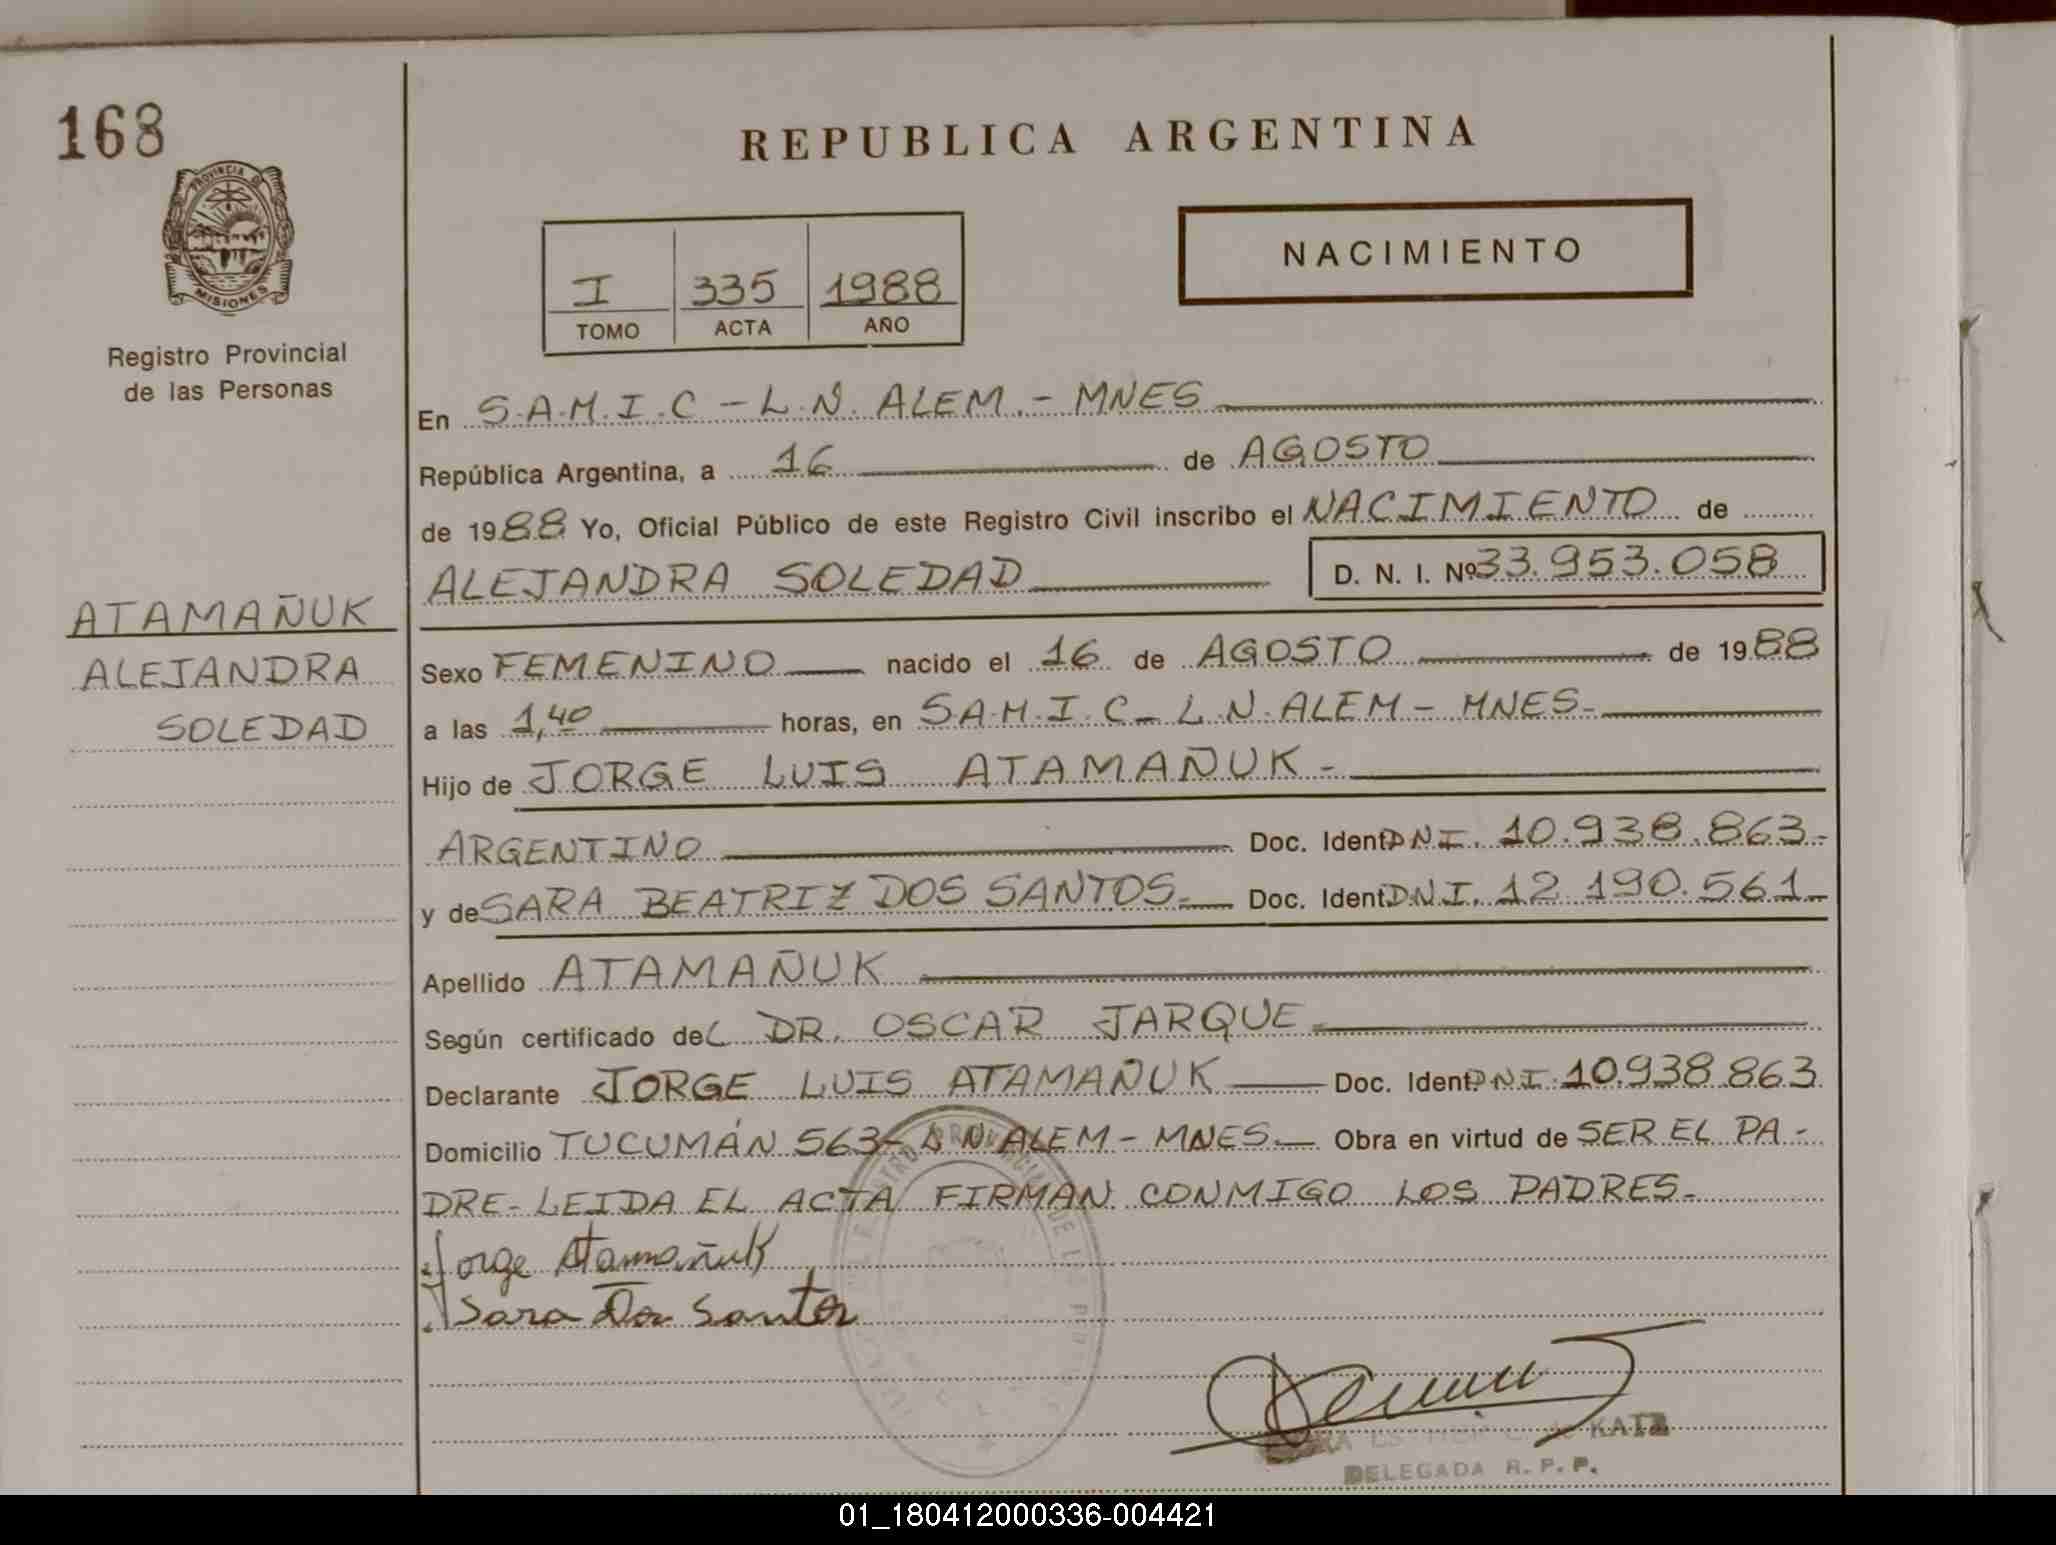 168
REPUBLICA ARGENTINA
PROVINCIA DE
MISIONES
Registro Provincial
de las Personas
NACIMIENTO
I 335 1988
TOMO ACTA AÑO
En S.A.M.I.C - L.N. ALEM. - MNES
República Argentina, a 16 de AGOSTO
de 1988 Yo, Oficial Público de este Registro Civil inscribo el NACIMIENTO de
ALEJANDRA SOLEDAD D. N. I. Nº 33.953.058
ATAMAÑUK
ALEJANDRA
SOLEDAD
Sexo FEMENINO nacido el 16 de AGOSTO de 1988
a las 1,40 horas, en S.A.M.I.C - L.N. ALEM - MNES-
Hijo de JORGE LUIS ATAMAÑUK -
ARGENTINO Doc. Ident. DNI. 10.938.863-
y de SARA BEATRIZ DOS SANTOS.- Doc. Ident. D.N.I. 12.190.561-
Apellido ATAMAÑUK
Según certificado del DR. OSCAR JARQUE
Declarante JORGE LUIS ATAMAÑUK Doc. Ident. DNI. 10.938.863
Domicilio TUCUMÁN 563- L.N. ALEM - MNES.- Obra en virtud de SER EL PA-
DRE- LEIDA EL ACTA FIRMAN CONMIGO LOS PADRES-
Jorge Atamañuk
Sara Dos Santos
KATZ
DELEGADA R. P. P.
01_180412000336-004421